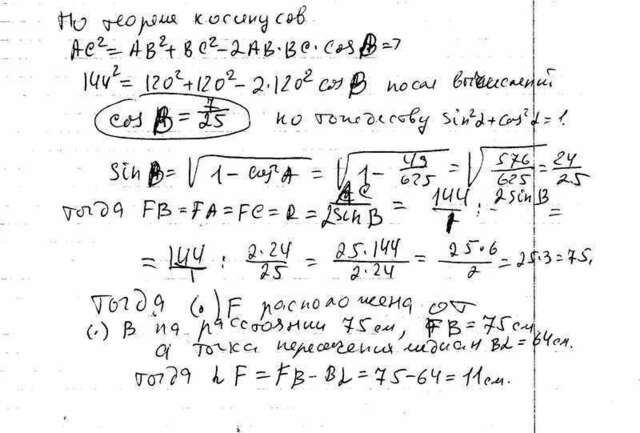 По теореме косинусов
AC² = AB² + BC² - 2AB·BC·cos B =>
144² = 120² + 120² - 2·120² cos B после вычислений
cos B = 7/25 по тождеству sin²α + cos²α = 1.
Sin B = √(1 - cos²A) = √(1 - 49/625) = √(576/625) = 24/25
тогда FB = FA = FC = R = AC/(2sin B) = 144/1 : 2sin B =
= 144/1 : 2·24/25 = 25·144/2·24 = 25·6/2 = 25·3 = 75.
Тогда (·) F расположена от
(·) B на расстоянии 75 см, FB = 75 см
а точка пересечения медиан BL = 64 см.
тогда LF = FB - BL = 75 - 64 = 11 см.